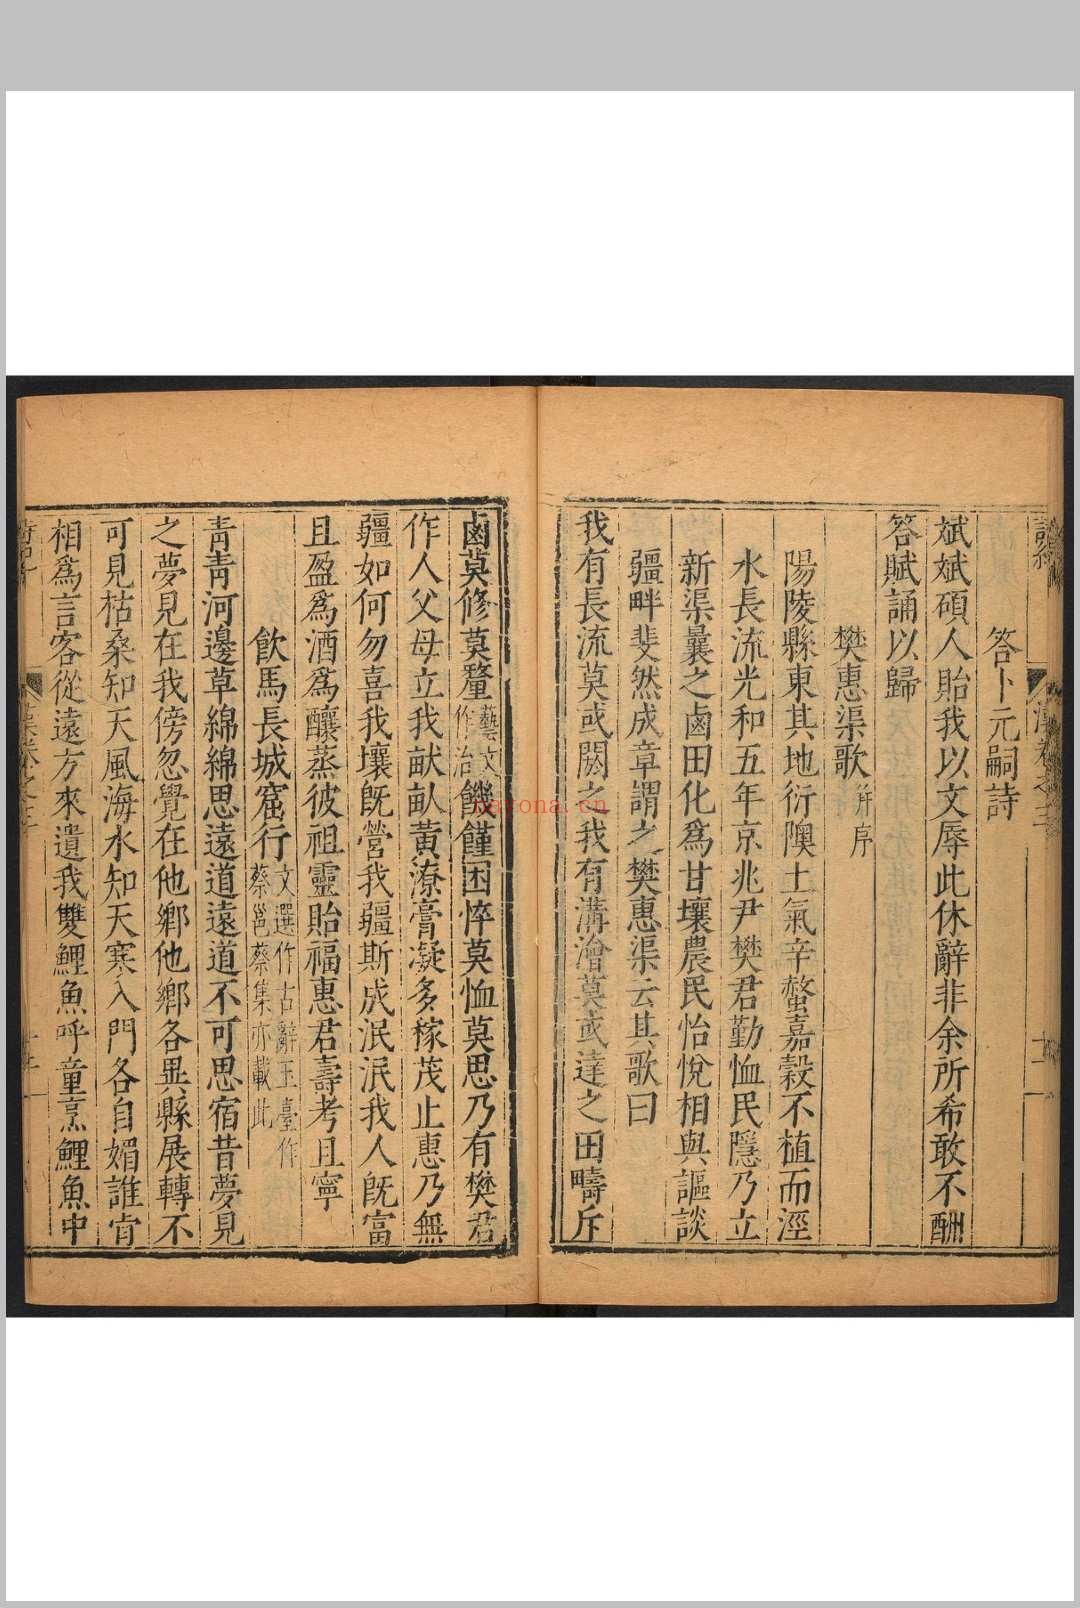 答卜元嗣詩
斌斌碩人貽我以文辱此休辭非余所希敢不酬
答賦誦以歸
樊惠渠歌并序
陽陵縣東其地衍隩土氣辛螫嘉穀不植而涇
水長流光和五年京兆尹樊君勤恤民隱乃立
新渠曩之鹵田化爲甘壤農民怡悅相與謳談
疆畔斐然成章謂之樊惠渠云其歌曰
我有長流莫或閼之我有溝澮莫或達之田疇斥
鹵莫修莫釐藝文作治饑饉困悴莫恤莫思乃有樊君
作人父母立我畎畝黃潦膏凝多稼茂止惠乃無
疆如何勿喜我壤旣營我疆斯成泯泯我人旣富
且盈爲酒爲釀蒸彼祖靈貽福惠君壽考且寧
飲馬長城窟行文選作古辭玉臺作蔡邕蔡集亦載此
靑靑河邊草綿綿思遠道遠道不可思宿昔夢見
之夢見在我傍忽覺在他鄉他鄉各異縣展轉不
可見枯桑知天風海水知天寒入門各自媚誰肯
相爲言客從遠方來遺我雙鯉魚呼童烹鯉魚中
bayona.cn